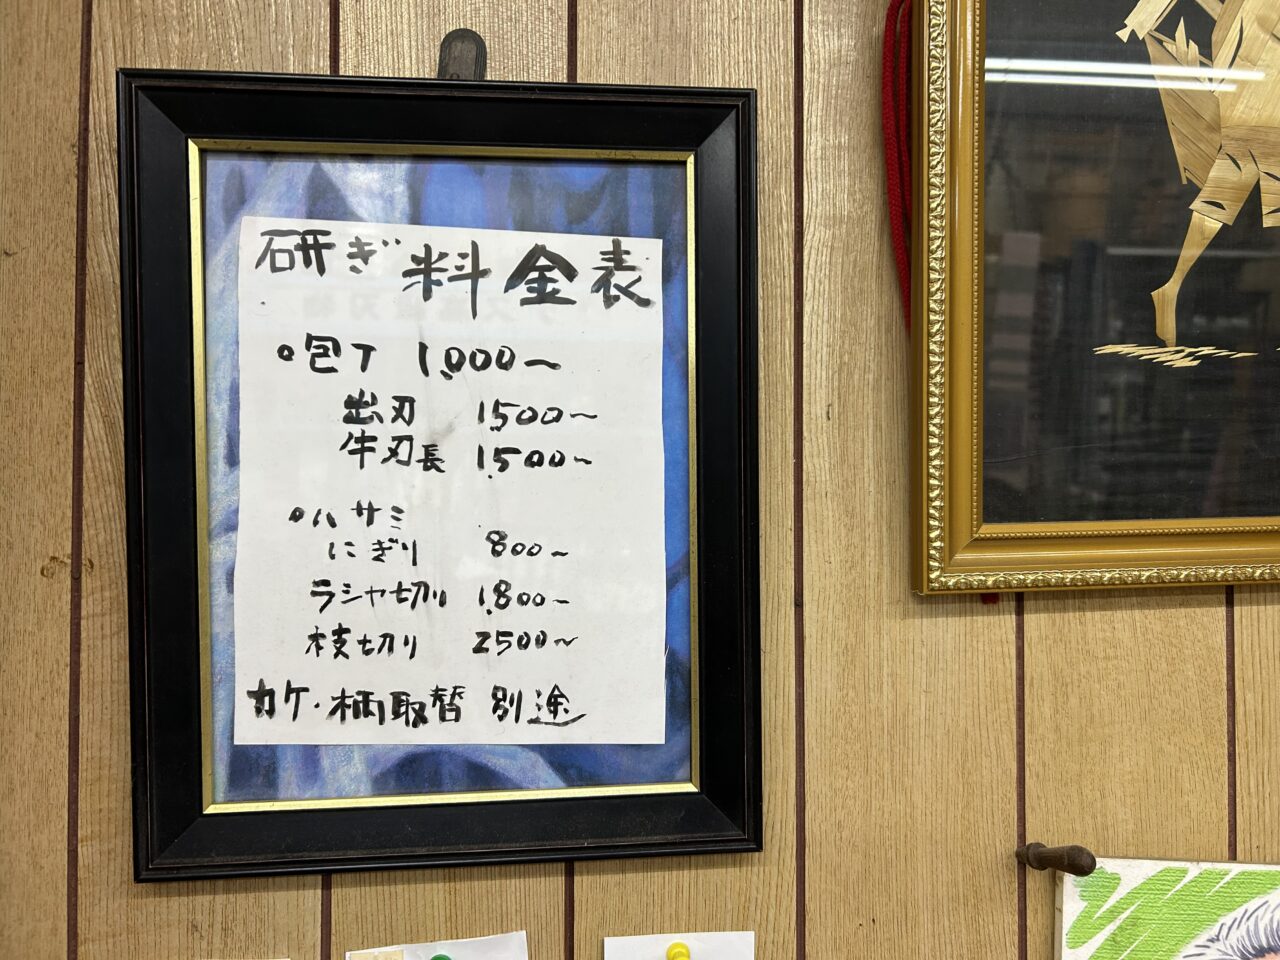 研ぎ料金表
○包丁 1,000〜
出刃 1,500〜
牛刃長 1,500〜
○ハサミ
にぎり 800〜
ラシャ切り 1,800〜
枝切り 2500〜
カケ・柄取替 別途